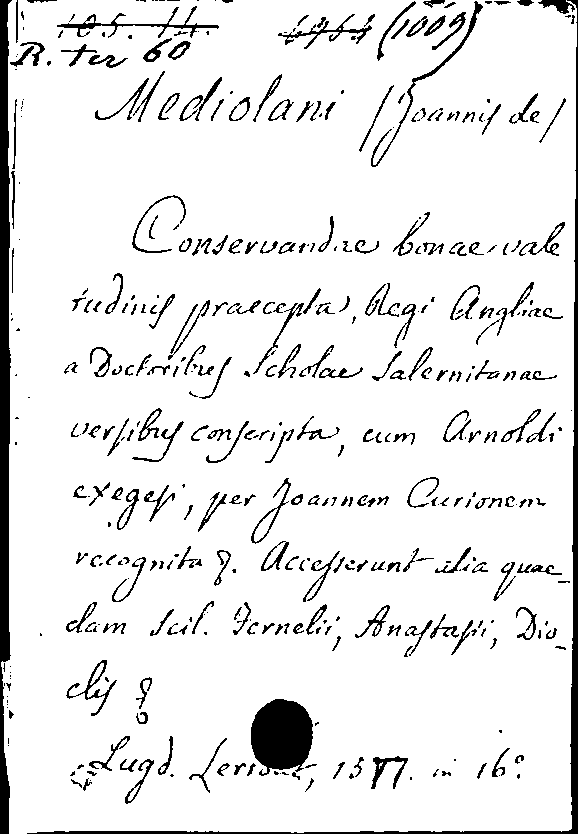 105. 14. 6963 (1009)
R. ter 60
Mediolani /Joannis de/
Conservandae bonae vale
tudinis praecepta, Regi Angliae
a Doctoribus Scholae Salernitanae
versibus conscripta, cum Arnoldi
exegesi, per Joannem Curionem
recognita &. Accesserunt alia quae_
dam scil. Fernelii, Anastasii, Dio_
clis &
Lugd. 1577. in 16°.